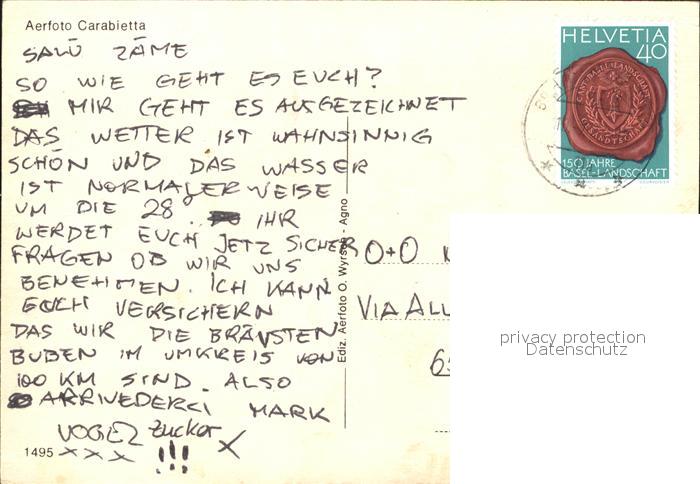 Aerfoto Carabietta
SALÜ ZÄME
SO WIE GEHT ES EUCH?
MIR GEHT ES AUSGEZEICHNET
DAS WETTER IST WAHNSINNIG
SCHÖN UND DAS WASSER
IST NORMALERWEISE
UM DIE 28°. IHR
WERDET EUCH JETZ SICHER
FRAGEN OB WIR UNS
BENEHMEN. ICH KANN
EUCH VERSICHERN
DAS WIR DIE BRÄVSTEN
BUBEN IM UMKREIS VON
100 KM SIND. ALSO
ARRIVEDERCI MARK
VOGEL Zucker X
X X X !!!
1495
Ediz. Aerfoto O. Wyrsch - Agno
HELVETIA
40
CANT. BASEL-LANDSCHAFT
GESANDTSCHAFT
150 JAHRE
BASEL-LANDSCHAFT
O+O
VIA
privacy protection
Datenschutz